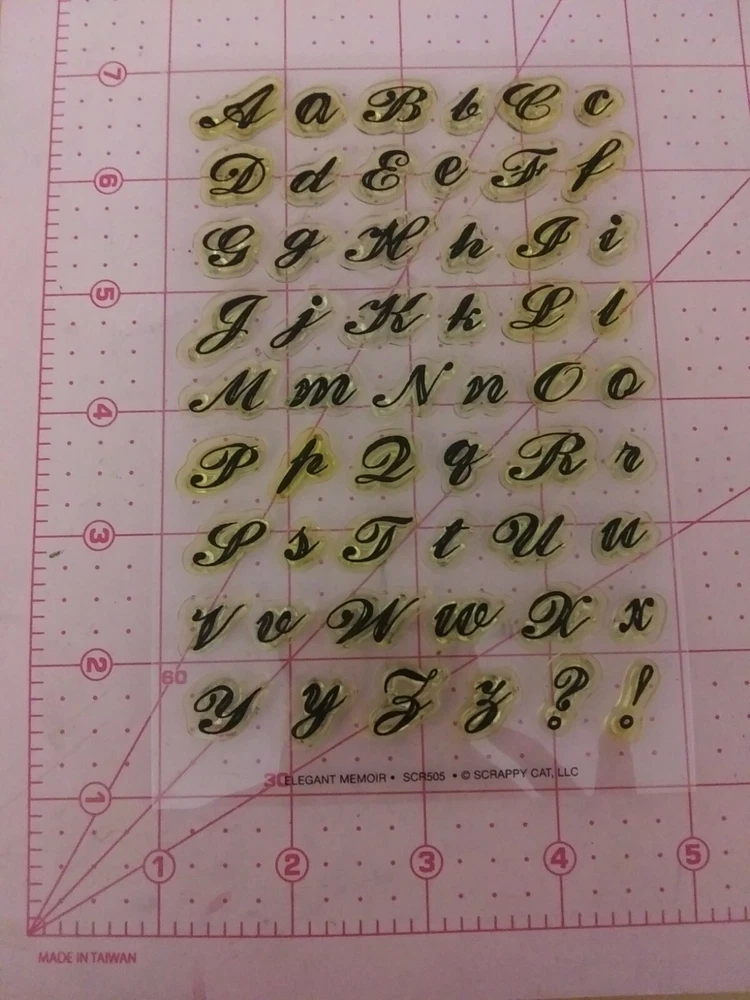 7
A a B b C c
6
D d E e F f
G g H h I i
5
J j K k L l
4
M m N n O o
P p Q q R r
3
S s T t U u
V v W w X x
2
60
Y y Z z ? !
30
ELEGANT MEMOIR • SCR505 • © SCRAPPY CAT, LLC
1
1 2 3 4 5
MADE IN TAIWAN